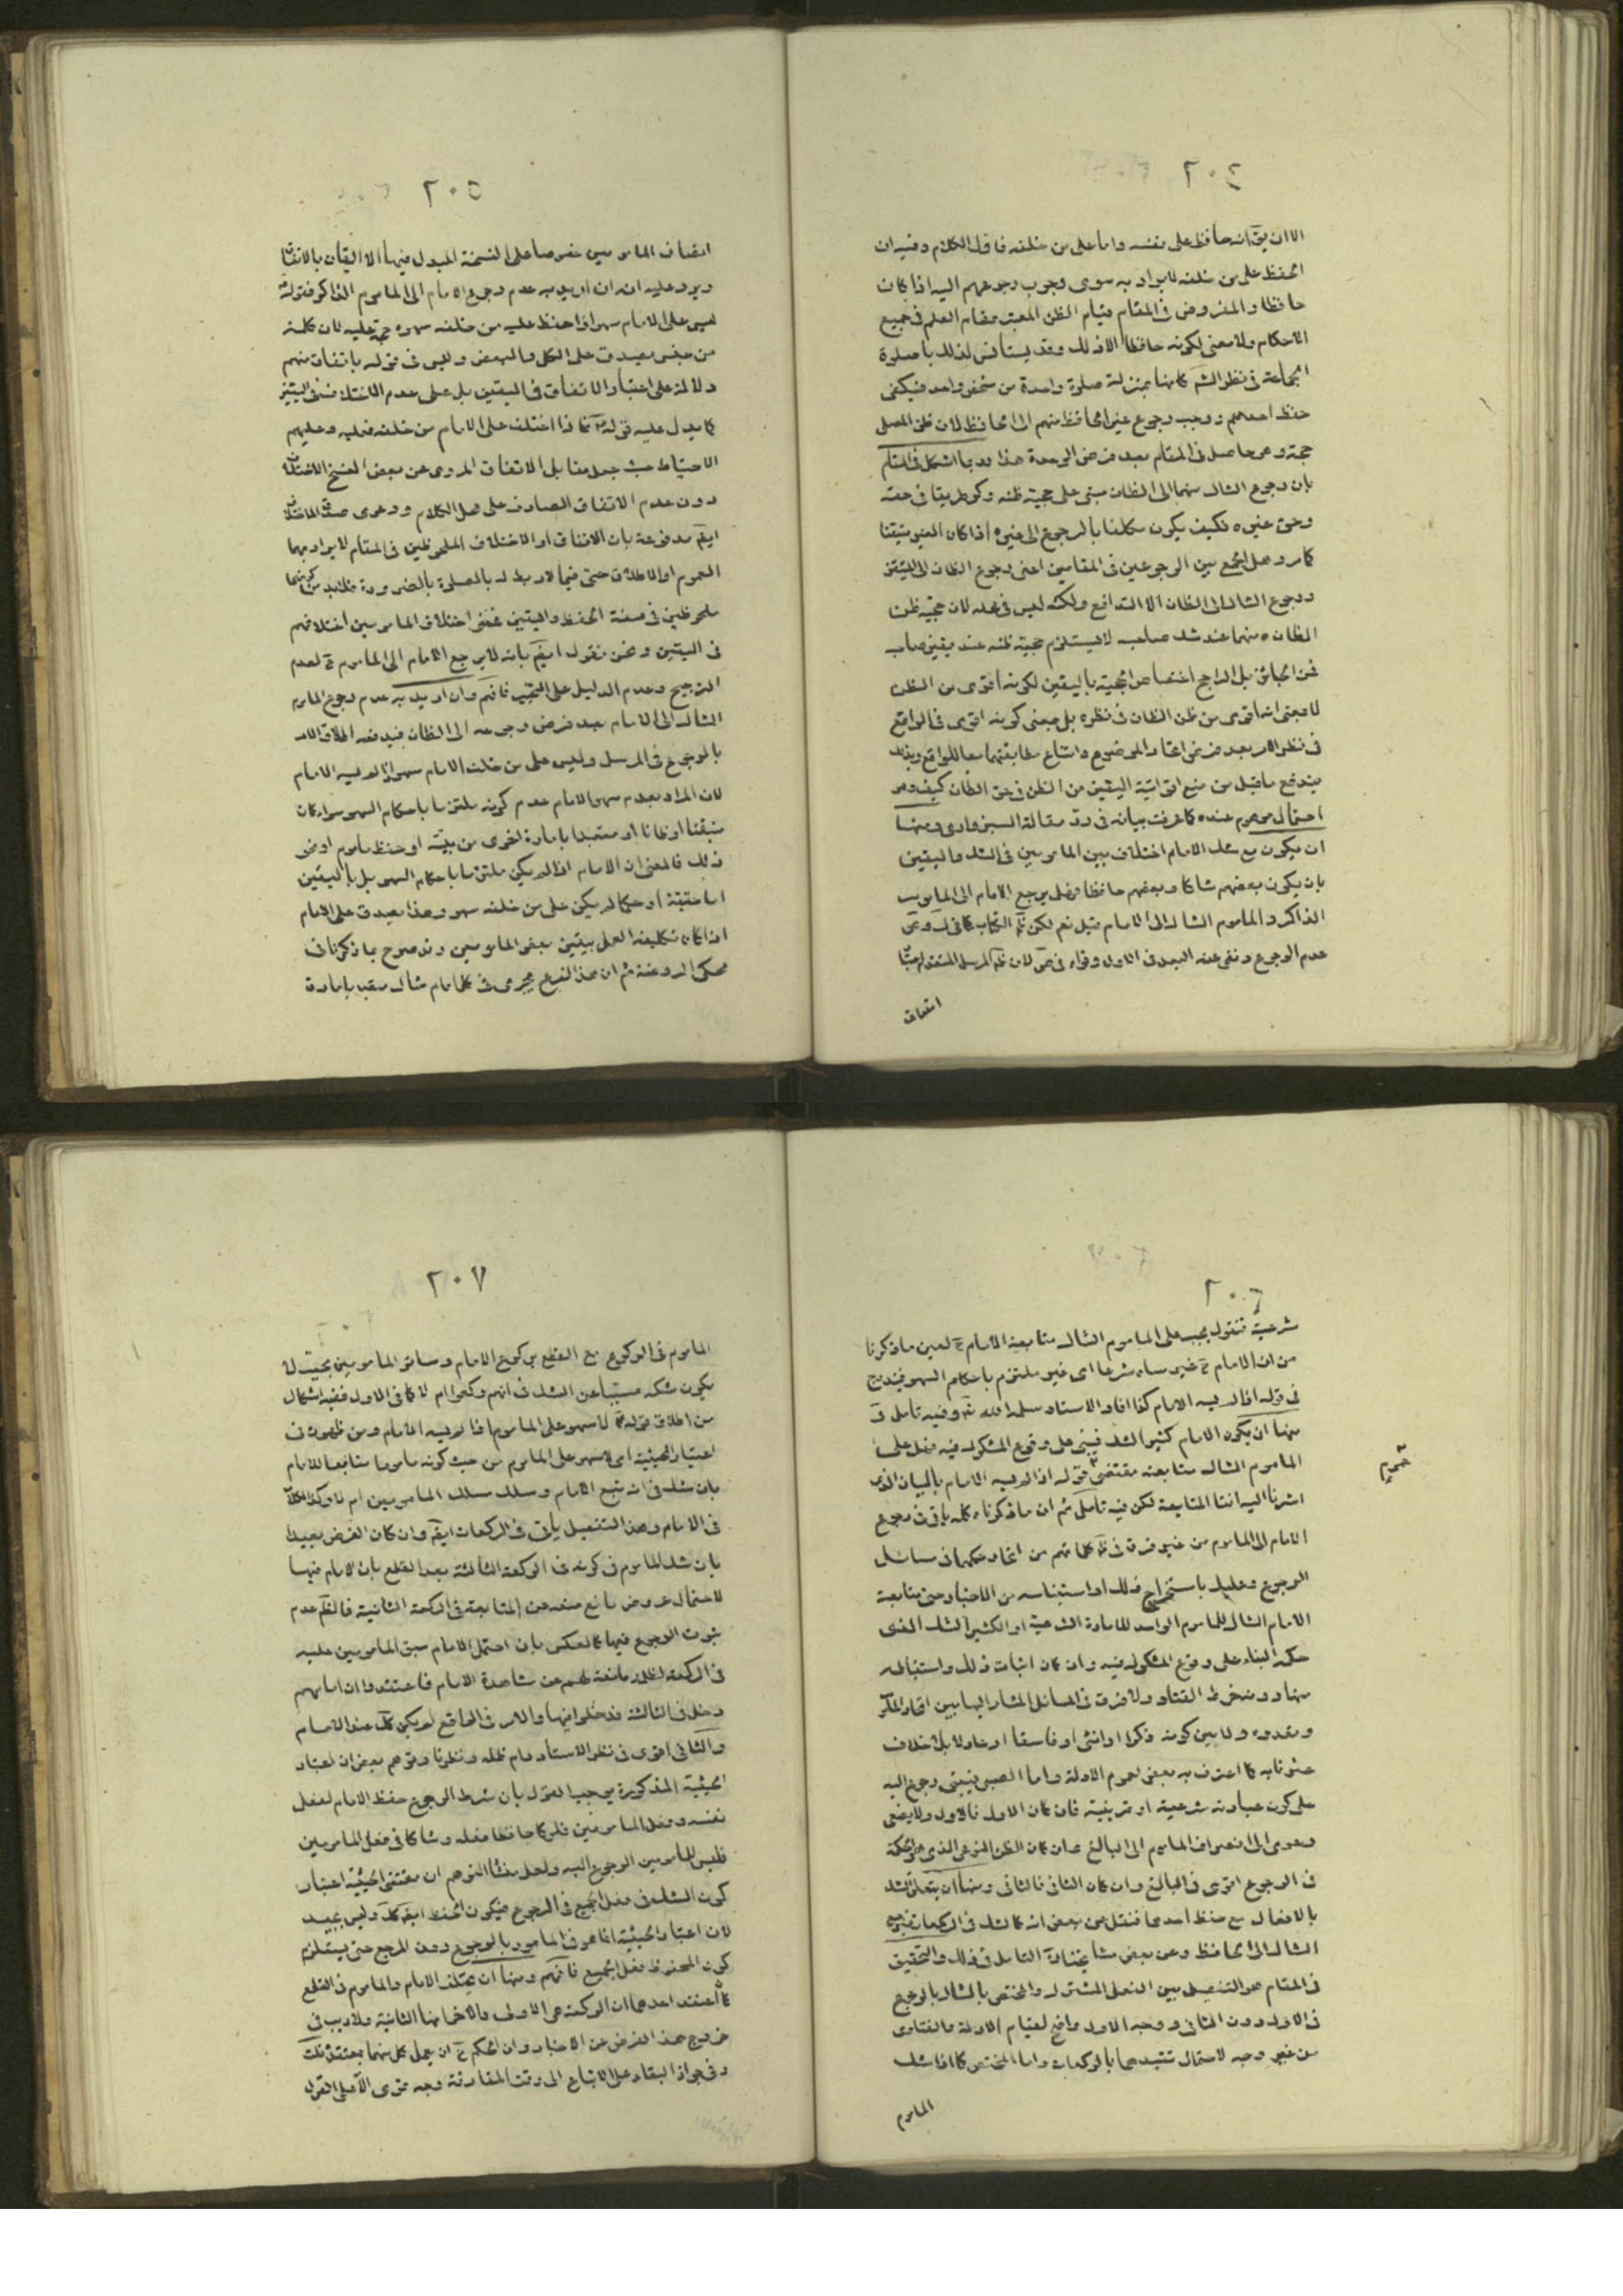 ٢٠٤
الا ان يقال انه حافظ على نفسه واما على من خلفه فاول الكلام وفيه ان
الحفظ على من خلفه لا يراد به سوى وجوب رجوعهم اليه اذا كان
حافظا والمفروض في المقام قيام الظن المعتبر مقام العلم في جميع
الاحكام ولا معنى لكونه حافظا الا ذلك وقد يستأنس لذلك بان صلوة
الجماعة في نظر الشم كانها بمنزلة صلوة واحدة من شخص واحد فيكفى
حفظ احدهم ووجب رجوع غير الحافظ منهم الى الحافظ لان ظن المصلى
حجة وهو حاصل في المقام بعد فرض الوحدة هذا وربما اشكل في المقام
بان رجوع الشاك منهما الى الظان مبنى على حجية ظنه وكونه طريقا في حقه
وحق غيره فكيف يكون مكلفا بالرجوع الى غيره اذا كان الغير متيقنا
كما مر وهل الجمع بين الرجوعين في المقامين اعنى رجوع الظان الى المتيقن
ورجوع الشاك الى الظان الا التدافع ولكنه ليس في محله لان حجية ظن
الظان منهما عند شك صاحبه لا يستلزم حجية ظنه عند يقين صاحبه
فمن الجائز بل الراجح اختصاص الحجية باليقين لكونه اقوى من الظن
لا بمعنى انه اقوى من ظن الظان في نظره بل بمعنى كونه اقوى في الواقع
في نظر الامر بعد فرض اتحاد الموضوع وامتناع مطابقتهما معا للواقع وبذلك
يندفع ما قيل من منع اقوائية اليقين من الظن في حق الظان كيف وهو
احتمال موهوم عنده كما عرفت بيانه في رد مقالة السبزوارى ومنها
ان يكون مع شك الامام اختلاف بين المامومين في الشك واليقين
بان يكون بعضهم شاكا وبعضهم حافظا فهل يرجع الامام الى الماموم
الذاكر والماموم الشاك الى الامام قيل نعم لكن
عدم الرجوع ونفى عنه البعد في الاول وقواه في لان ظم المرسل المتقدم
اتفاق
٢٠٥
اتفاق المامومين خصوصا على النسخة المبدل فيها الا اليقان بالاتفاق
ويرد عليه انه ان اريد به عدم رجوع الامام الى الماموم الذاكر فقوله
ليس على الامام سهو اذا حفظ عليه من خلفه سهوه حجة عليه لان كلمة
من جنس يصدق على الكل والبعض وليس في قوله باتفاق منهم
دلالة على اعتبار الاتفاق في اليقين بل على عدم الاختلاف في اليقين
كما يدل عليه قوله فاذا اختلف على الامام من خلفه فعليه وعليهم
الاحتياط حيث جعل مقابل الاتفاق المروى عن بعض النسخ الاختلاف
دون عدم الاتفاق الصادق على محل الكلام ودعوى صدق الاختلاف
ايضا مدفوعة بان الاتفاق او الاختلاف الملحوظين في المقام لا يراد بهما
العموم او الاطلاق حتى فيما لا ربط له بالصلوة بالضرورة فلا بد من كونهما
ملحوظين في صفة الحفظ واليقين فمعنى اختلاف المامومين اختلافهم
في اليقين ونحن نقول ايضا بانه لا يرجع الامام الى الماموم ح لعدم
الترجيح وعدم الدليل على التخيير فافهم وان اريد به عدم رجوع الماموم
الشاك الى الامام بعد فرض رجوعه الى الظان فيدفعه اطلاق الامر
بالرجوع في المرسل وليس على من خلف الامام سهو اذا لم يسه الامام
لان المراد بعدم سهو الامام عدم كونه ملتزما باحكام السهو سواء كان
متيقنا او ظانا او متعبدا بامارة اخرى من بينة او حفظ ماموم او نحو
ذلك فالمعنى ان الامام اذا لم يكن ملتزما باحكام السهو بل باليقين
اما حقيقة او حكما لم يكن على من خلفه سهو وهذا يصدق على الامام
اذا كان تكليفه العمل بيقين بعض المامومين وقد صرح بما ذكرنا في
محكى الروضة ثم ان هذا الفرع يجرى في كل امام شاك متعبد بامارة
٢٠٦
شرعية فنقول يجب على الماموم الشاك متابعة الامام ح لعين ما ذكرنا
من ان الامام ح غير ساه شرعا اى غير ملتزم باحكام السهو فيندرج
في قوله اذا لم يسه الامام كذا افاد الاستاد سلمه الله وفيه تامل
منها ان يكون الامام كثير الشك فيبنى على وقوع المشكوك فيه فهل على
الماموم الشاك متابعته مقتضى قوله اذا لم يسه الامام بالبيان الذى
اشرنا اليه انفا المتابعة لكن فيه تامل ثم ان ما ذكرناه كله باق في رجوع
الامام الى الماموم من غير فرق في كلماتهم من اتحاد حكمهما في مسائل
الرجوع وعليك باستخراج ذلك او استيناسه من الاخبار حتى متابعة
الامام الشاك للماموم الواجد للامارة الشرعية او الكثير الشك الذى
حكمه البناء على وقوع المشكوك فيه وان كان اثبات ذلك واستنباطه
منها دونه خرط القتاد ولا فرق في المسائل المشار اليها بين اتحاد الماموم
وتعدده ولا بين كونه ذكرا او انثى او فاسقا او عادلا بلا خلاف
عثرنا به كما اعترف به بعض لعموم الادلة واما الصبى فيبتنى رجوع اليه
على كون عباداته شرعية او تمرينية فان كان الاول فالاول ولا يصغى
دعوى الى انصراف الماموم الى البالغ وان كان الظن النوعى الذى هو الحكمة
في الرجوع اقوى في البالغ وان كان الثانى فالثانى ومنها ان يتعلق الشك
بالافعال مع حفظ احدهما فنقل عن بعض انه كالشك في الركعات فيرجع
الشاك الى الحافظ وعن بعض مشايخنا التامل في ذلك والتحقيق
في المقام هو التفصيل بين الفعل المشترك والمختص بالشاك بالرجوع
في الاول دون الثانى ووجه الاول واضح لقيام الادلة والفتاوى
من غير وجه لاحتمال تقييدها بالركعات واما المختص كما اذا شك
الماموم
٢٠٧
الماموم في الركوع مع القطع بركوع الامام وسائر المامومين بحيث لا
يكون شكه مسببا عن الشك في انهم ركعوا ام لا كما في الاول ففيه اشكال
من اطلاق قوله لا سهو على الماموم اذا لم يسه الامام ومن ظهوره في
اعتبار الحيثية اى لا سهو على الماموم من حيث كونه ماموما متابعا للامام
بان شك في انه تبع الامام وسلك مسلك المامومين ام لا وكذا الكلام
في الامام وهذا التفصيل ياتى في الركعات ايضا وان كان الفرض بعيدا
بان شك الماموم في كونه في الركعة الثالثة بعد القطع بان الامام فيها
لاحتمال عروض مانع منعه من المتابعة في الركعة الثانية فالظم عدم
ثبوت الرجوع فيها كالعكس بان احتمل الامام سبق المامومين عليه
في الركعة لظلمة مانعة لهم عن مشاهدة الامام فاعتقدوا ان امامهم
دخل في الثالثة فدخلوا فيها والامر في الواقع لم يكن كك عند الامام
والثانى اقوى في نظر الاستاد دام ظله ونظرنا وتوهم بعض ان اعتبار
الحيثية المذكورة يوجب القول بان شرط الرجوع حفظ الامام لفعل
نفسه وفعل المامومين فلو كان حافظا فعله وشاكا في فعل المامومين
فليس للمامومين الرجوع اليه ولعل منشا التوهم ان مقتضى الحيثية اعتبار
كون الشك في فعل الجميع في الرجوع فيكون الحفظ ايضا كك وليس بجيد
لان اعتبار الحيثية انما هو في المامور بالرجوع دون المرجع حتى يستلزم
كون المحفوظ فعل الجميع فافهم ومنها ان يختلف الامام والماموم في القطع
كما اعتقد احدهما ان الركعة هى الاولى والاخر انها الثانية ولا ريب في
خروج هذا الفرض عن الاخبار وان الحكم ح ان يعمل كل منهما بمعتقده
وفي جواز البقاء على الاتباع الى وقت المفارقة وجه قوى الا على القول